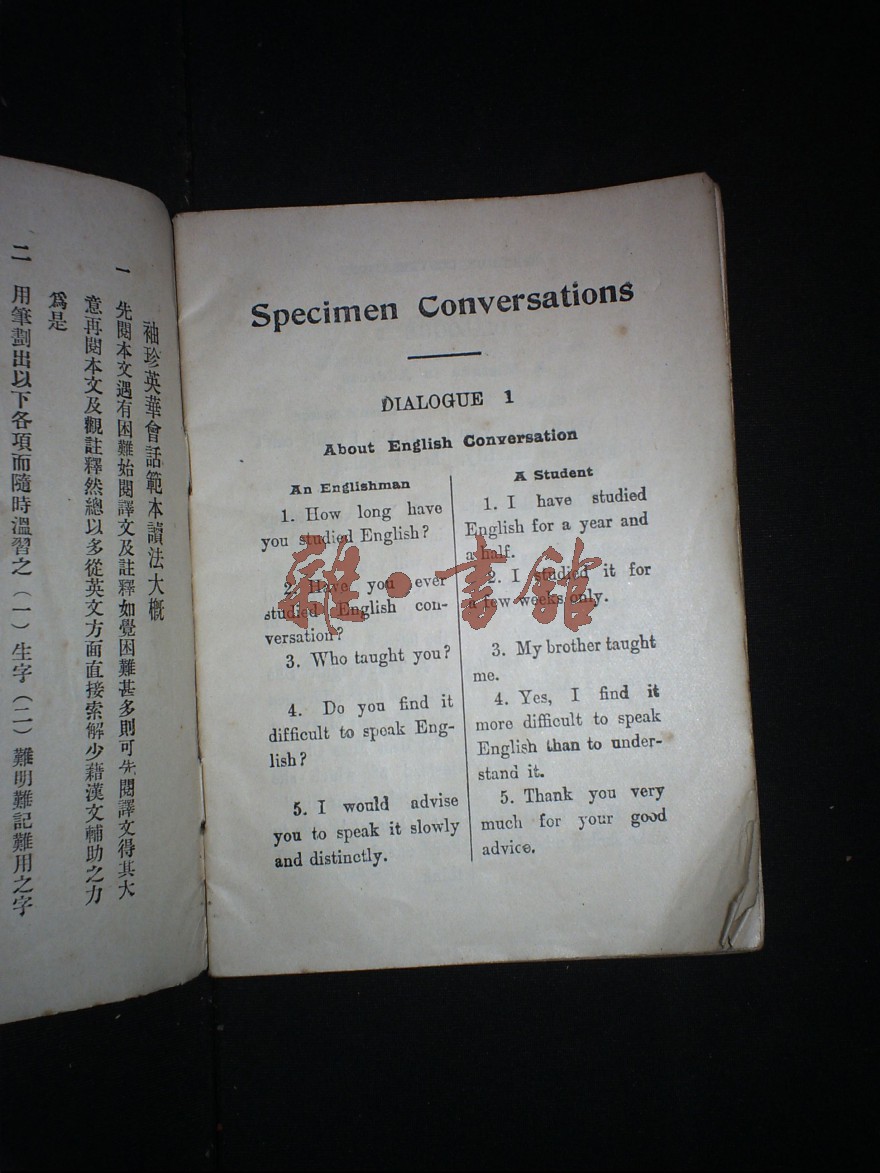 袖珍英華會話範本讀法大概
一 先閱本文遇有困難始閱譯文及註釋如覺困難甚多則可先閱譯文得其大
意再閱本文及觀註釋然總以多從英文方面直接索解少藉漢文輔助之力
爲是
二 用筆劃出以下各項而隨時溫習之（一）生字（二）難明難記難用之字
Specimen Conversations
DIALOGUE 1
About English Conversation
An Englishman
1. How long have
you studied English?
2. Have you ever
studied English con-
versation?
3. Who taught you?
4. Do you find it
difficult to speak Eng-
lish?
5. I would advise
you to speak it slowly
and distinctly.
A Student
1. I have studied
English for a year and
a half.
2. I studied it for
a few weeks only.
3. My brother taught
me.
4. Yes, I find it
more difficult to speak
English than to under-
stand it.
5. Thank you very
much for your good
advice.
雜·書館